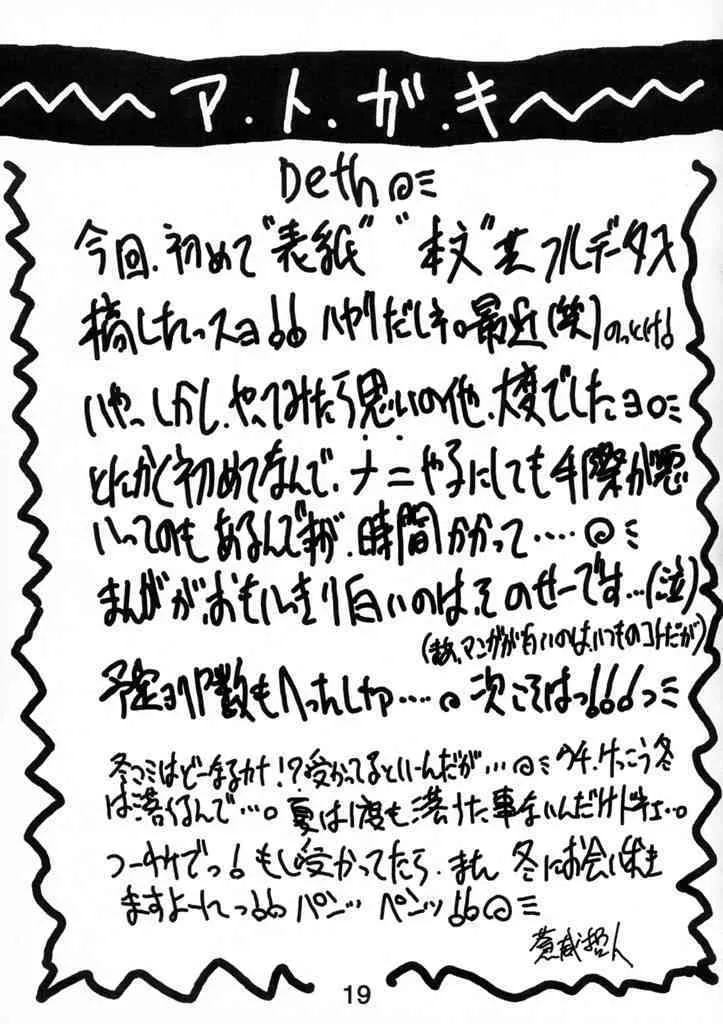 ア.ト.ガ.キ
Deth
今回、初めて“表紙” “本文”共フルデータ入
稿したっスヨ!! ハヤリだしネ。最近(笑)のっとけ!
いやっ、しかし、やってみたら思いの他、大変でしたヨ
とにかく初めてなんで、ナニやるにしても手際が悪
いってのもあるんですが、時間かかって‥‥
まんがが、おもいっきり白いのは、そのせーです…(泣)
マンガが白いのは、いつものコトだが)
予定よりP数もへったしさ‥‥。次こそはっ!!!っ
冬コミはどーなるカナ!?受かってるといーんだが… ウチ、けっこう冬
は落ちるんで…。夏は1度も落ちた事ないんだけドネェ…。
つーわけでっ!もし受かってたら、また 冬にお会いしき
ますよーねっ!! パンッ ペンッ!!
19